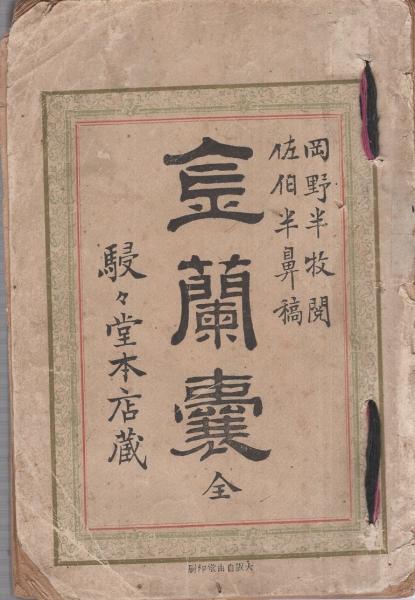 岡野半牧閲
佐伯半鼻稿
金蘭嚢
全
駸々堂本店蔵
大阪自由堂印刷